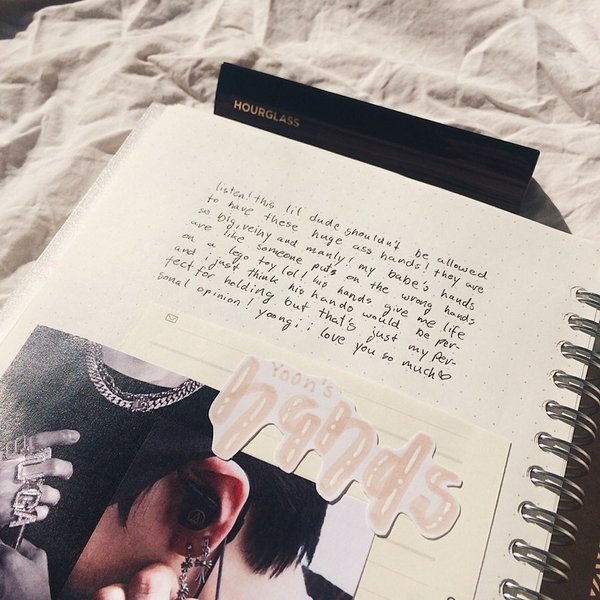 HOURGLASS
listen! this lil dude shouldn't be allowed
to have these huge ass hands! they are
so big, veiny and manly! my babe's hands
are like someone puts on the wrong hands
on a lego toy lol! his hands give me life
and i just think his hands would be per-
fect for holding but that's just my per-
sonal opinion! yoongi i love you so much♡
Yoon's
hands